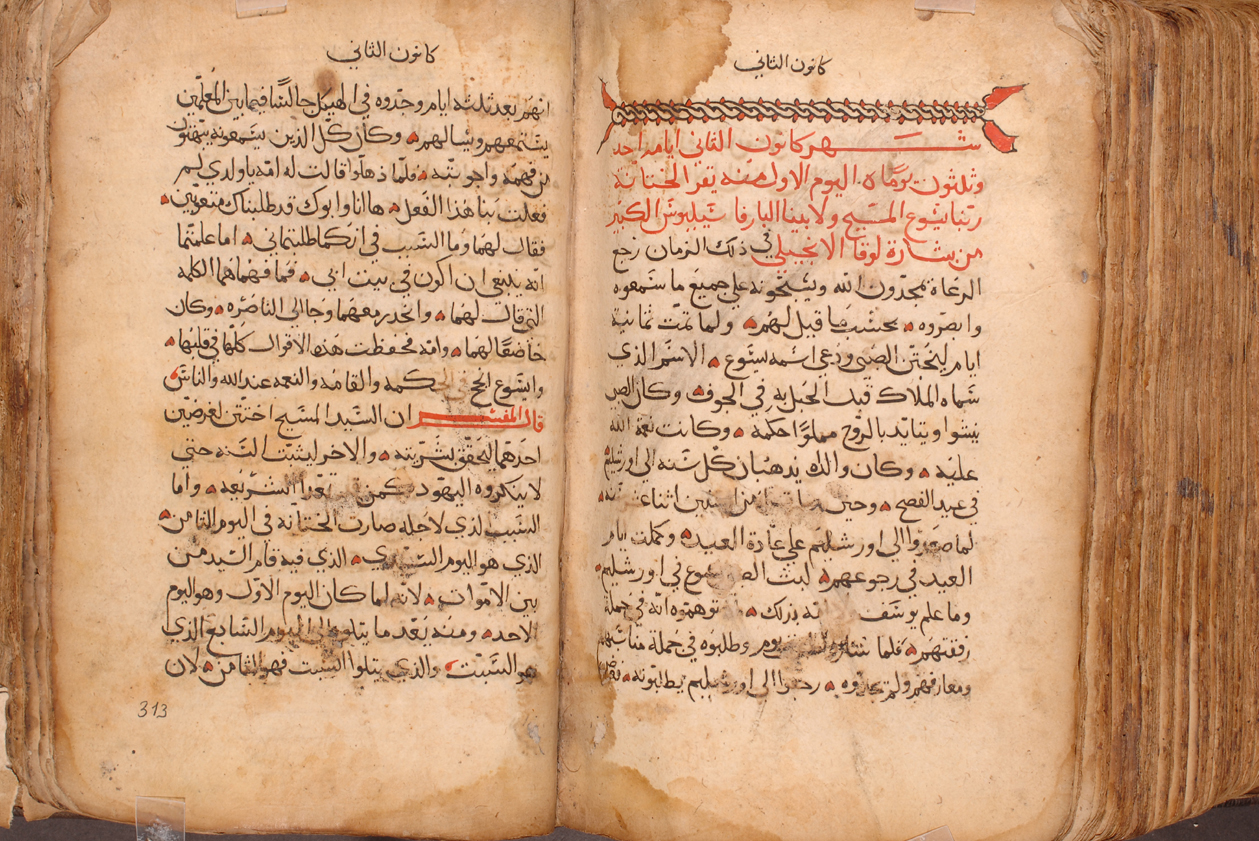 كانون الثاني
شهر كانون الثاني ايامه احد
وثلثون يومًا ه اليوم الاول منه يقرا لختانة
ربنا يسوع المسيح ولابينا البار باسيليوس الكبير
من بشارة لوقا الانجيلي في ذلك الزمان رجع
الرعاة يمجدون الله ويسبحونه علي جميع ما سمعوه
وابصروه بحسب ما قيل لهم ولما تمت ثمانية
ايام ليختن الصبي ودعي اسمه يسوع الاسم الذي
سماه الملاك قبل الحبل به في الجوف وكان الصبي
ينشوا ويتايد بالروح مملوًا حكمة وكانت نعمة الله
عليه وكان والداه يذهبان كل سنه الي اورشليم
في عيد الفصح وحين اثنا
لما صعدوا الي اورشليم علي عادة العيد وكملت ايام
العيد في رجوعهم لبث يسوع في اورشليم
وما علم يوسف بذلك توهموه انه في جملة
رفقتهم فلما يوم وطلبوه في جملة
ومعارفهم ولم يجدوه رجعوا الي اورشليم يطلبونه
كانون الثاني
انهم بعد ثلثه ايام وجدوه في الهيكل جالسًا فيما بين المعلمين
يستمعهم ويسالهم وكان كل الذين يسمعونه يبهتون
من فهمه واجوبته فلما ذهلوا قالت له امه يا ولدي لم
فعلت بنا هذا الفعل ها انا وابوك قد طلبناك متعوبين
فقال لهما وما السبب في انكما طلبتماني اما علمتما
انه ينبغي ان اكون في بيت ابي فما فهما هما الكلمه
التي قال لهما وانحدر معهما وجا الي الناصره وكان
خاضعًا لهما وامه فحفظت هذه الاقوال كلها في قلبها
وايشوع انجح في الحكمه والقامه والنعمه عند الله والناس
قال المفسر ان السيد المسيح اختتن لغرضين
احدهما ليحقق بشريته والاخر ليثبت السنه حتي
لا ينكروه اليهود كمن الشريعه واما
السبب الذي لاجله صارت الختانه في اليوم الثامن
الذي هو اليوم الذي فيه قام السيد من
بين الاموات لانه لما كان اليوم الاول وهو اليوم
الاحد ومنه يعد ما يتلوه الي اليوم السابع الذي
هو السبت والذي يتلوا السبت فهو الثامن لان
313